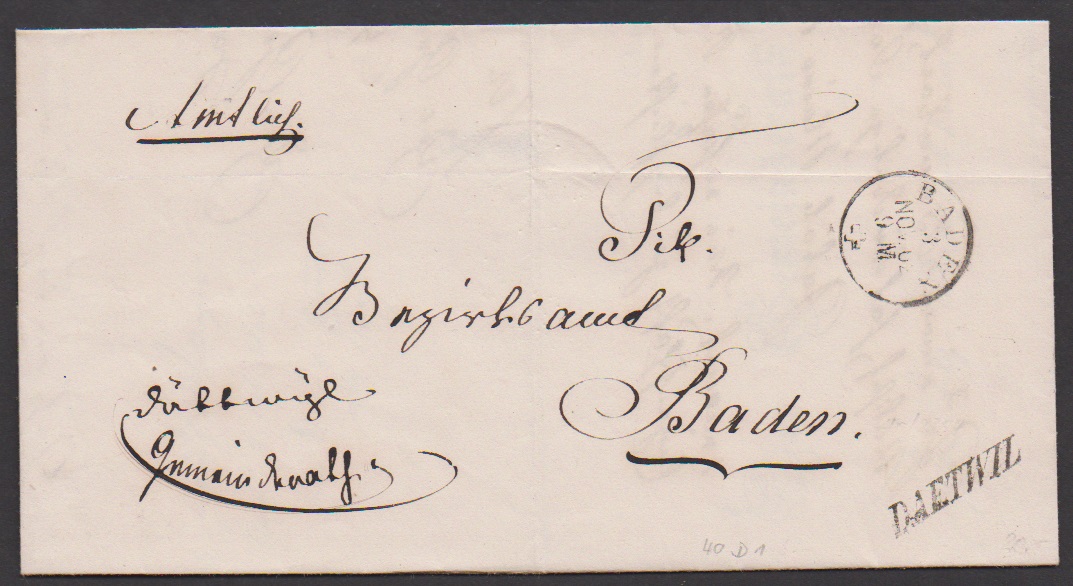 Amtlich.
Tit.
Bezirksamt
Baden.
Dättwyl
Gemeindrath
BADEN
3
NOV
6 M
DAETWIL
40 D 1